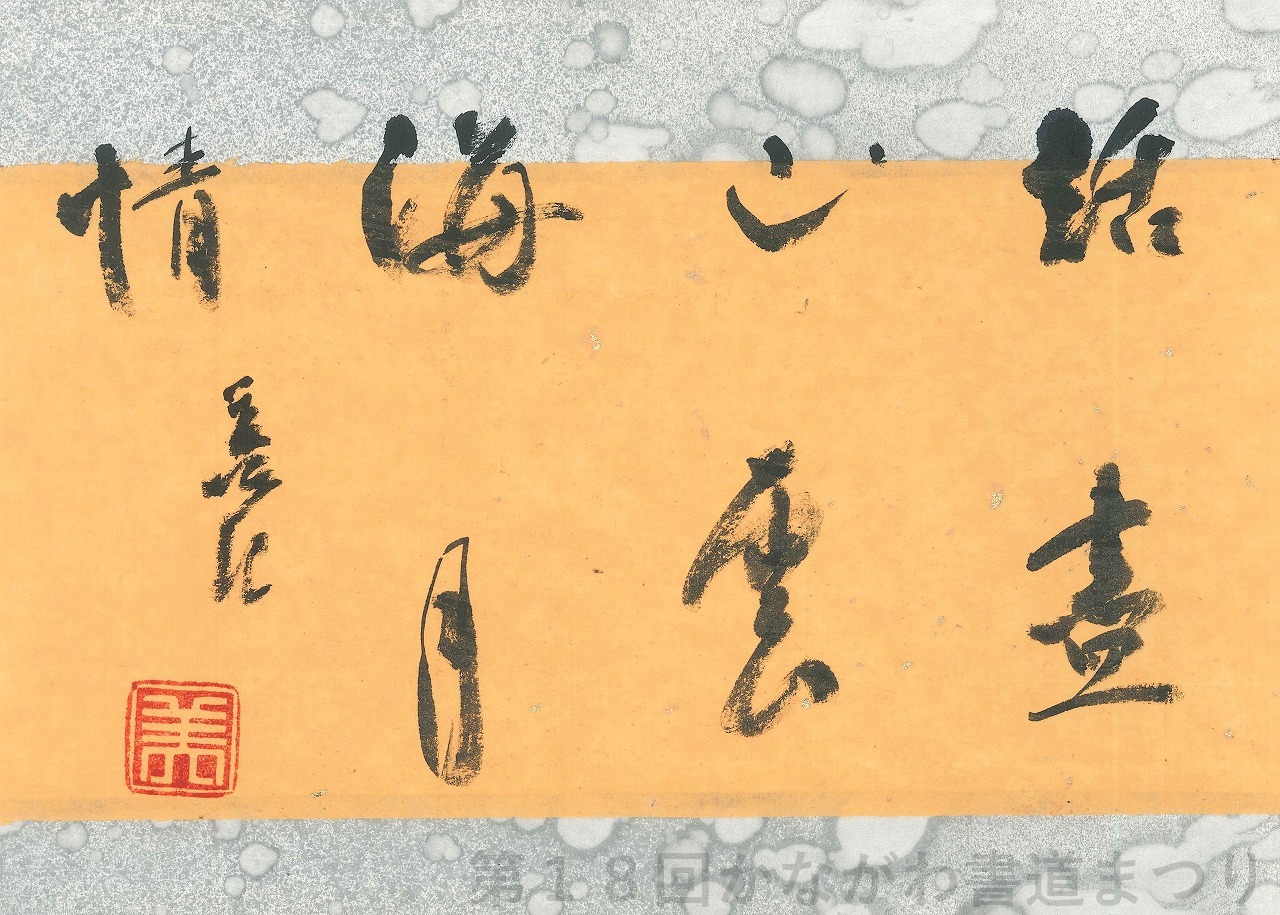 話盡
山雲
海月
情
第１８回かながわ書道まつり